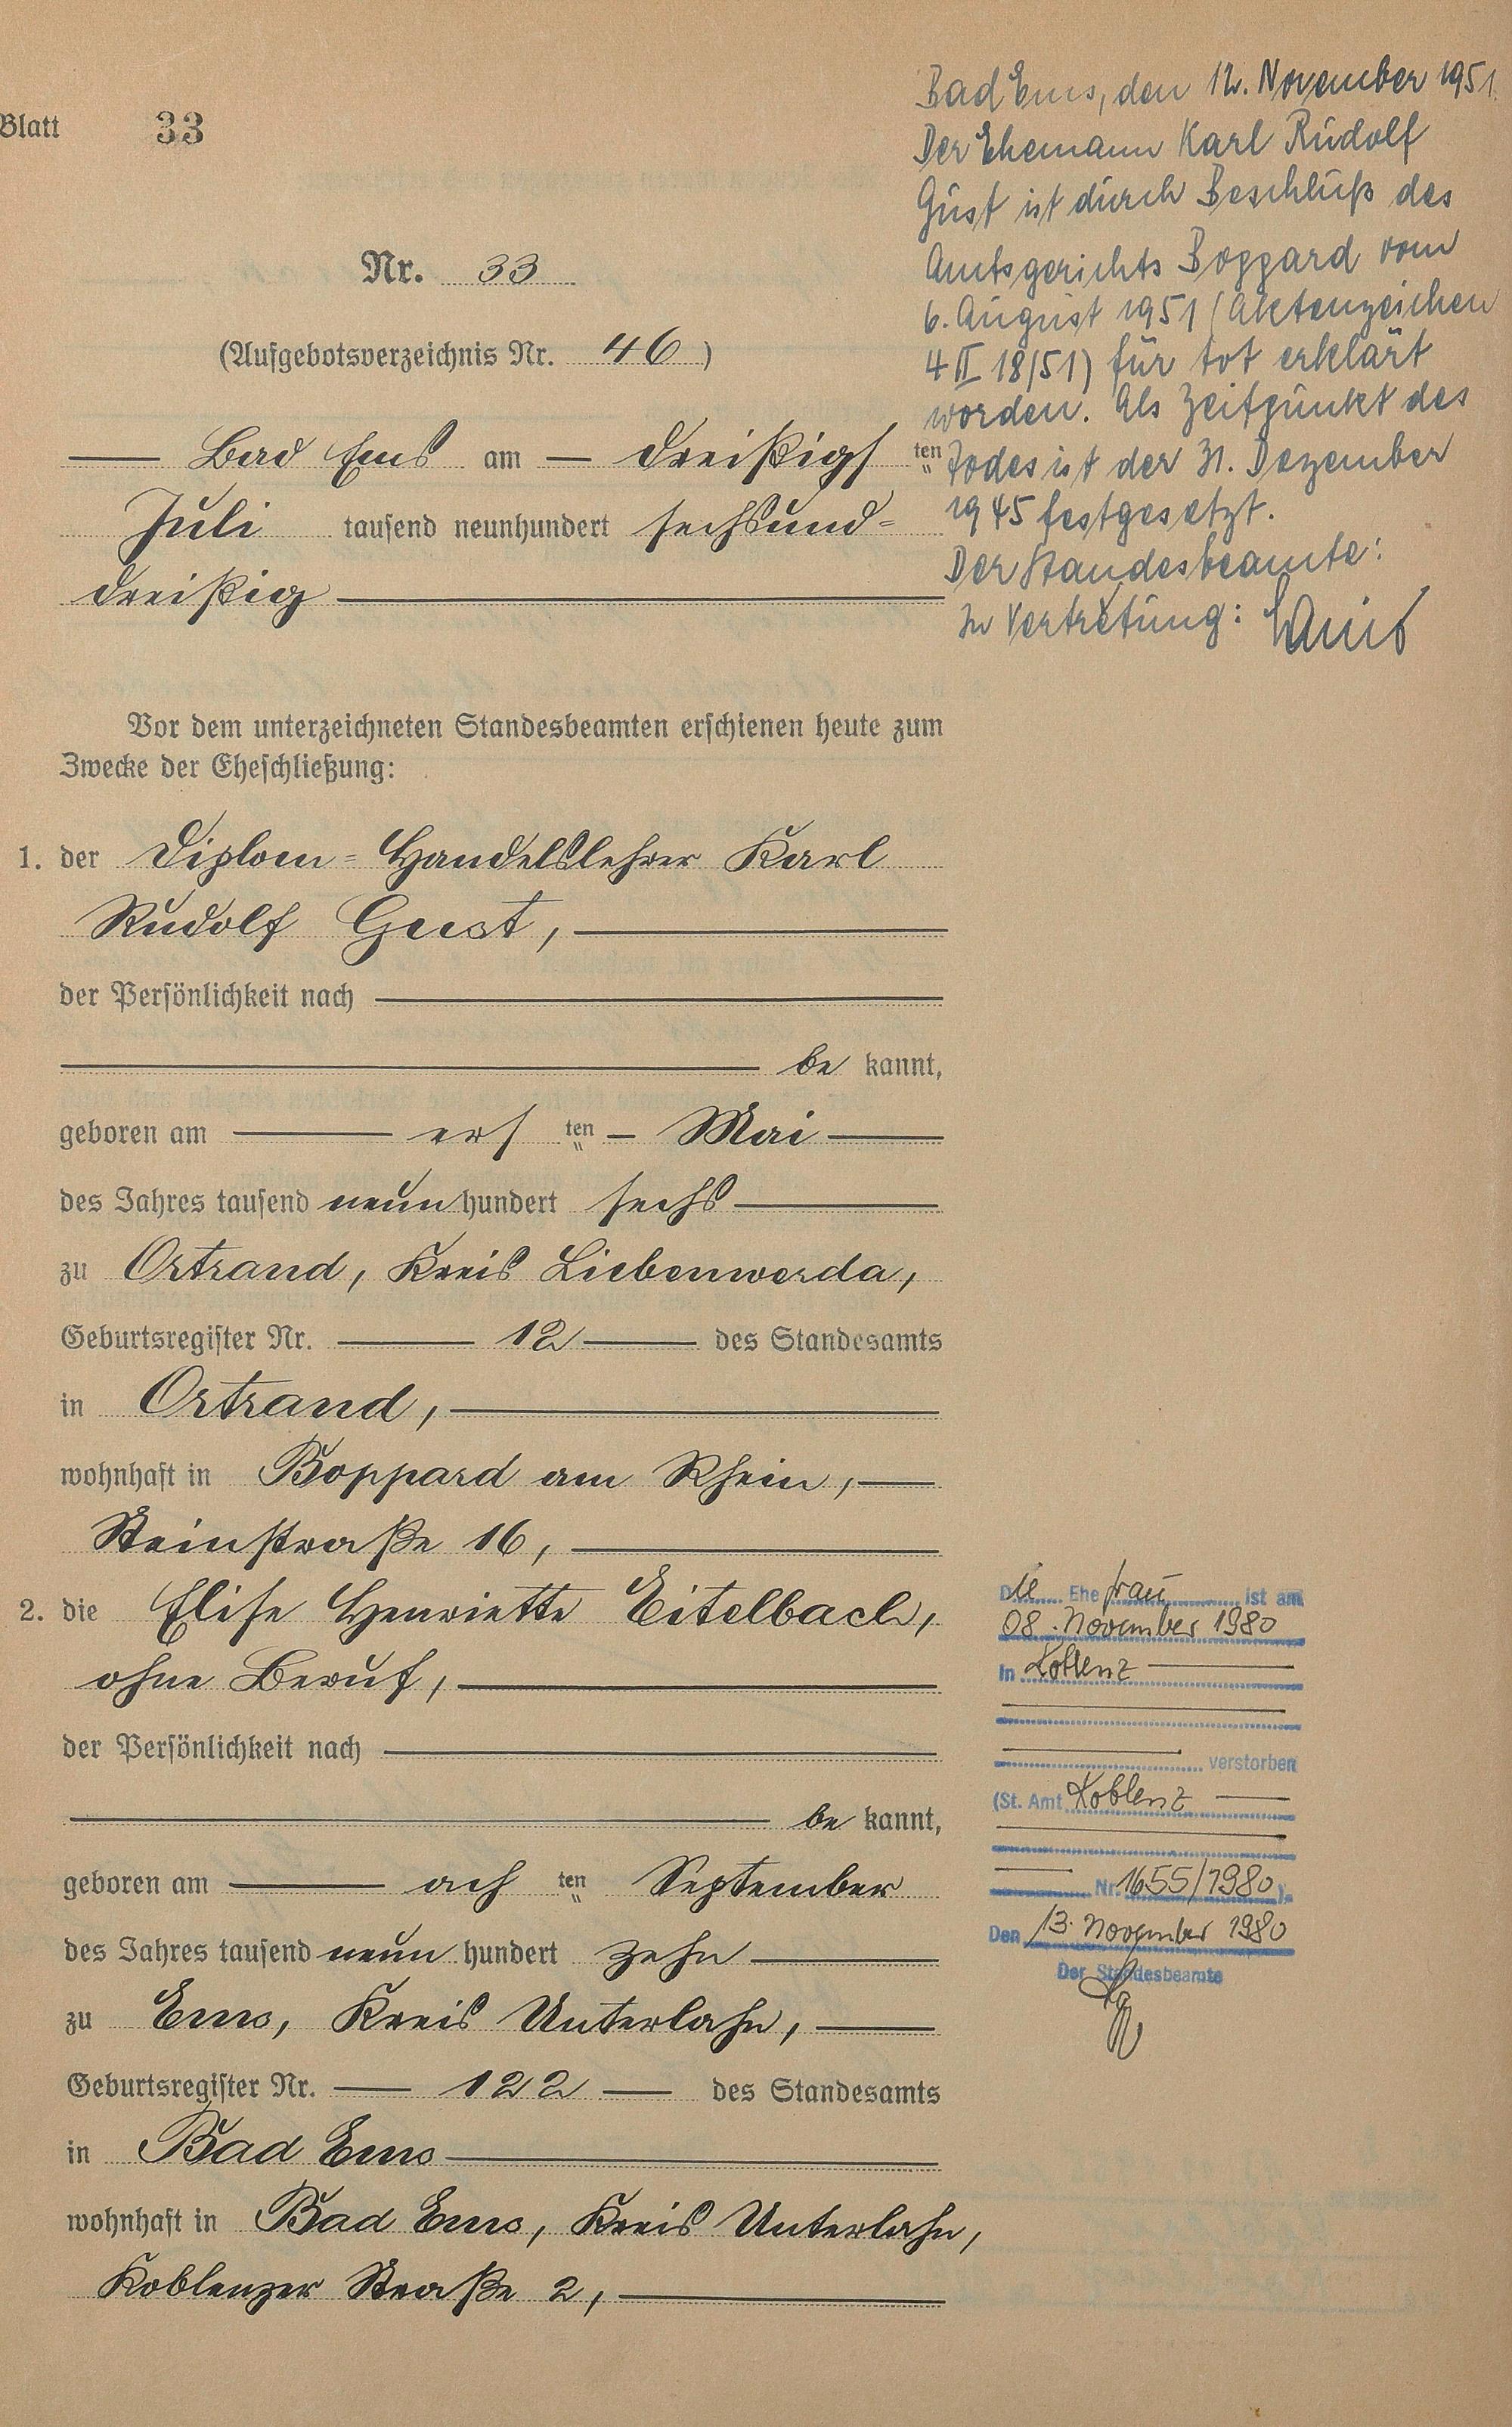 Blatt 33
Nr. 33
(Aufgebotsverzeichnis Nr. 46)
Bad Ems am dreißigsten
Juli tausend neunhundert sechsund=
dreißig
Bad Ems, den 12. November 1951.
Der Ehemann Karl Rudolf
Gust ist durch Beschluß des
Amtsgerichts Boppard vom
6. August 1951 (Aktenzeichen
4 II 18/51) für tot erklärt
worden. Als Zeitpunkt des
Todes ist der 31. Dezember
1945 festgesetzt.
Der Standesbeamte:
In Vertretung:
Vor dem unterzeichneten Standesbeamten erschienen heute zum
Zwecke der Eheschließung:
1. der Diplom=Handelslehrer Karl
Rudolf Gust,
der Persönlichkeit nach
be kannt,
geboren am ersten Mai
des Jahres tausend neun hundert sechs
zu Ortrand, Kreis Liebenwerda,
Geburtsregister Nr. 12 des Standesamts
in Ortrand,
wohnhaft in Boppard am Rhein,
Steinstraße 16,
2. die Elise Henriette Eitelbach,
ohne Beruf,
der Persönlichkeit nach
be kannt,
geboren am achten September
des Jahres tausend neun hundert zehn
zu Ems, Kreis Unterlahn,
Geburtsregister Nr. 122 des Standesamts
in Bad Ems
wohnhaft in Bad Ems, Kreis Unterlahn,
Koblenzer Straße 2,
Die Ehefrau ist am
08. November 1980
in Koblenz
verstorben
(St. Amt Koblenz
Nr. 1655/1980).
Den 13. November 1980
Der Standesbeamte